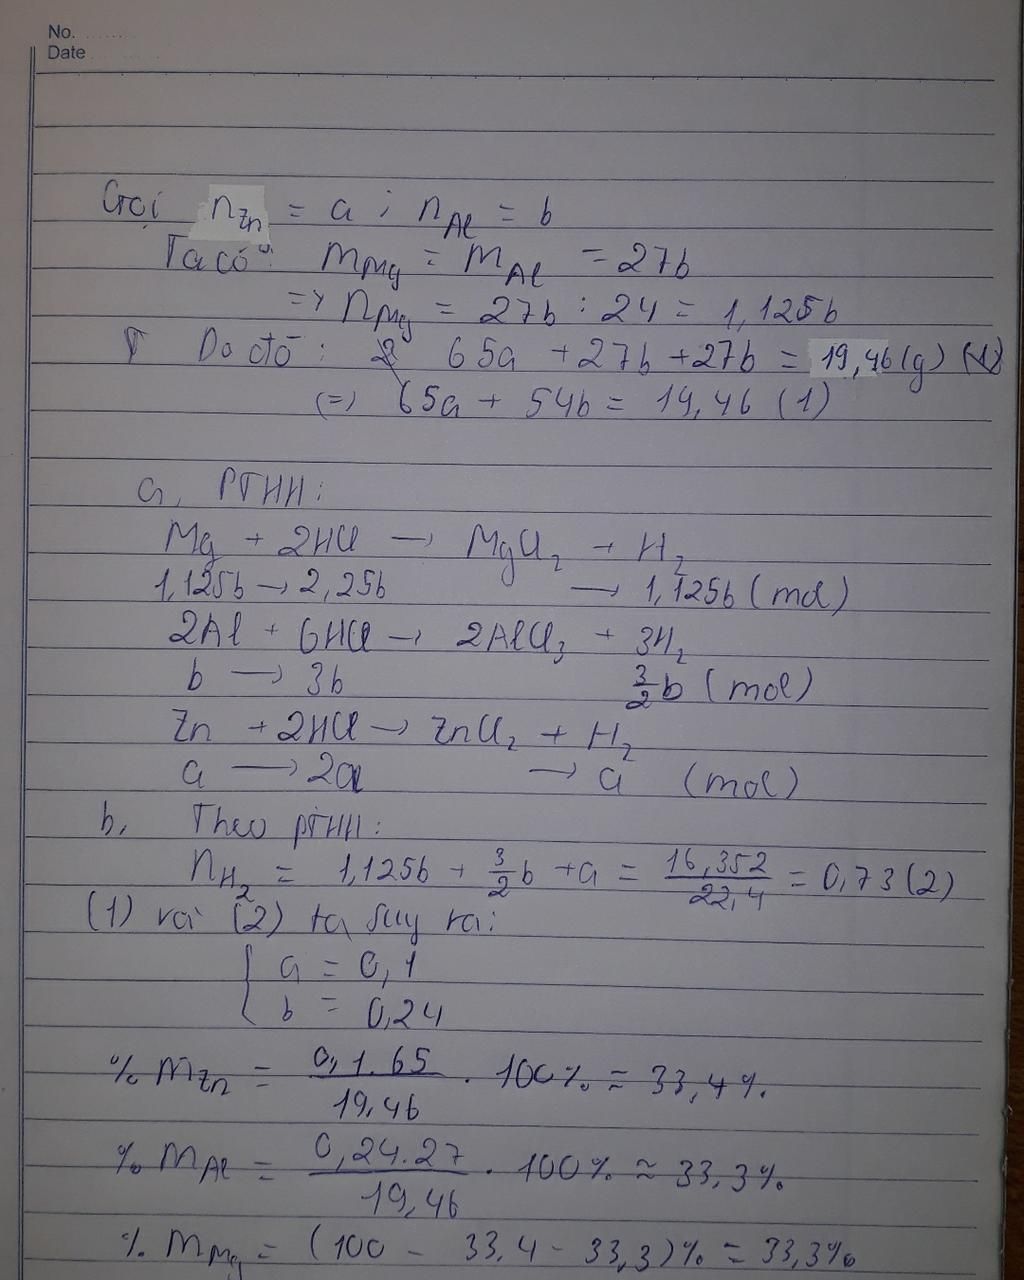 No.
Date
Gọi nZn = a ; nAl = b
Ta có: mMg = mAl = 27b
=> nMg = 27b : 24 = 1,125b
Do đó: 65a + 27b + 27b = 19,46(g) (1)
(=) 65a + 54b = 19,46 (1)
a, PTHH:
Mg + 2HCl → MgCl₂ + H₂
1,125b → 2,25b → 1,125b (mol)
2Al + 6HCl → 2AlCl₃ + 3H₂
b → 3b 3/2 b (mol)
Zn + 2HCl → ZnCl₂ + H₂
a → 2a → a (mol)
b, Theo PTHH:
nH₂ = 1,125b + 3/2 b + a = 16,352/22,4 = 0,73 (2)
(1) và (2) ta suy ra:
{ a = 0,1
b = 0,24
% mZn = 0,1.65/19,46 . 100% = 33,4%.
% mAl = 0,24.27/19,46 . 100% ≈ 33,3%
% mMg = (100 - 33,4 - 33,3)% = 33,3%